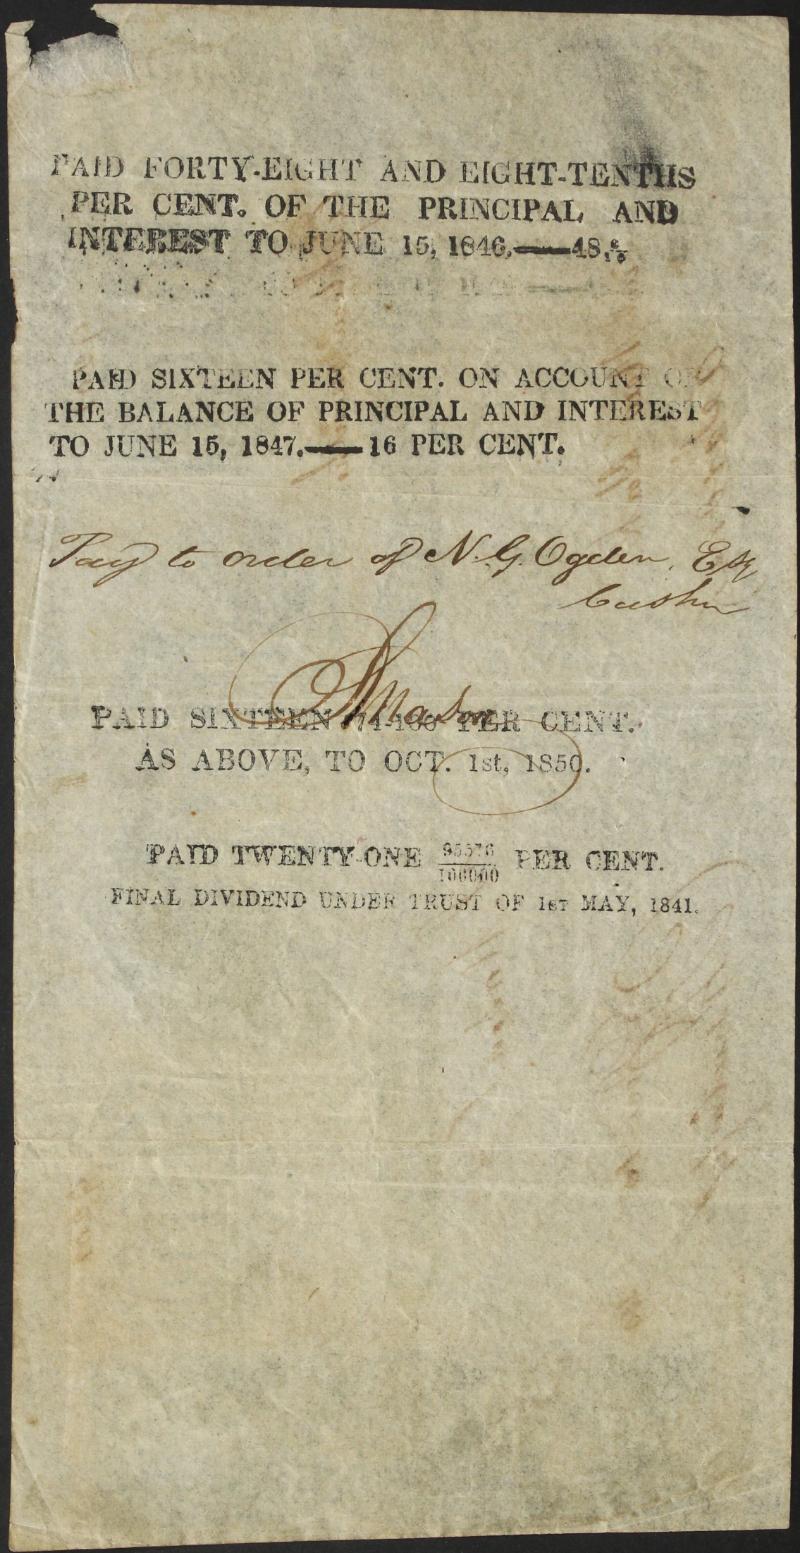 PAID FORTY-EIGHT AND EIGHT-TENTHS
PER CENT. OF THE PRINCIPAL AND
INTEREST TO JUNE 15, 1846.—48
PAID SIXTEEN PER CENT. ON ACCOUNT OF
THE BALANCE OF PRINCIPAL AND INTEREST
TO JUNE 15, 1847.—16 PER CENT.
Pay to order of N. G. Ogden, Esq
Cashr
Mason
PAID SIXTEEN 74-100 PER CENT.
AS ABOVE, TO OCT. 1st, 1850.
PAID TWENTY-ONE 95576/100000 PER CENT.
FINAL DIVIDEND UNDER TRUST OF 1ST MAY, 1841.